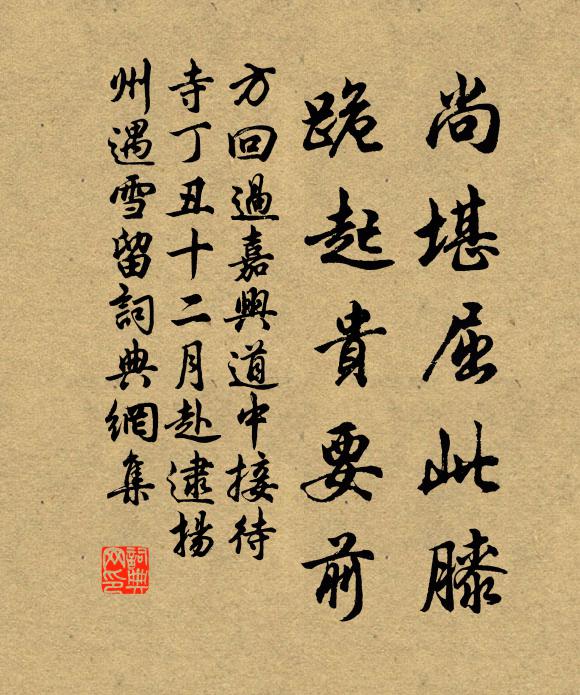 尚堪屈此膝
跪起貴要前
方回過嘉興道中接待
寺丁丑十二月赴逮揚
州遇雪留詞典網集
詞典
网印